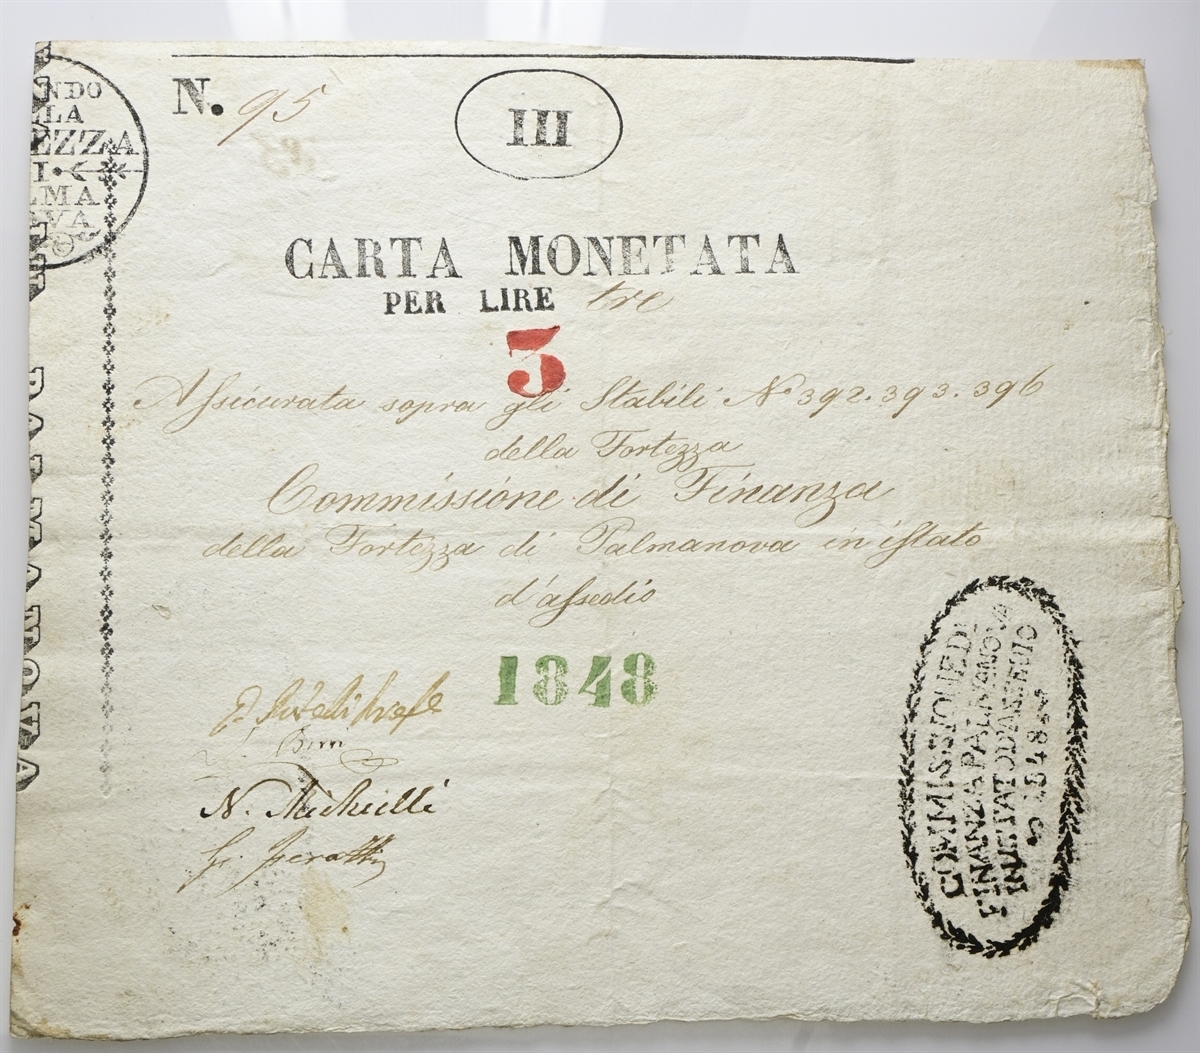 N. 95
III
NDO
LA
EZZA
I
LMA
OVA
CARTA MONETATA
PER LIRE tre
3
Assicurata sopra gli Stabili No 392. 393. 396
della Fortezza
Commissione di Finanza
della Fortezza di Palmanova in istato
d'assedio
1848
N. Michielli
PALMANOVA
COMMISSIONE DI
FINANZA PALMANOVA
IN ISTATO D'ASSEDIO
1848